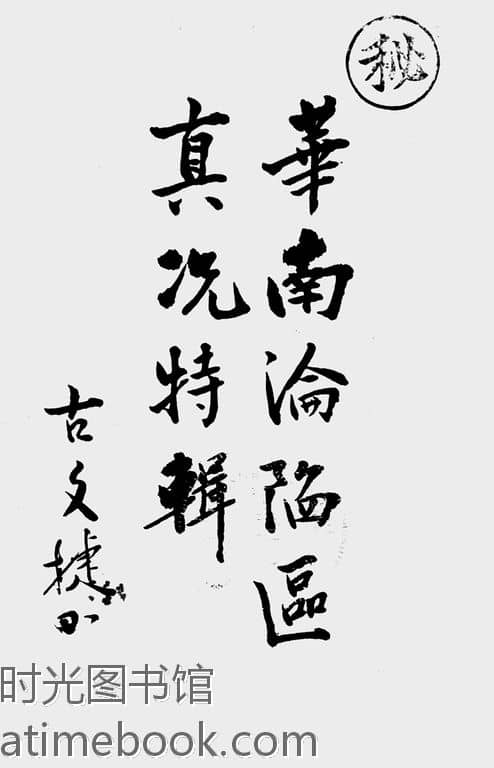 秘
華南淪陷區
真况特輯
古文捷
时光图书馆
atimebook.com